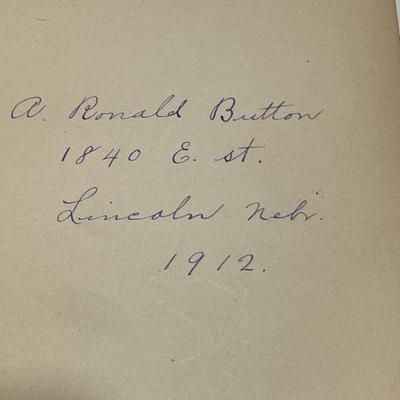 A. Ronald Button
1840 E. st.
Lincoln Nebr.
1912.